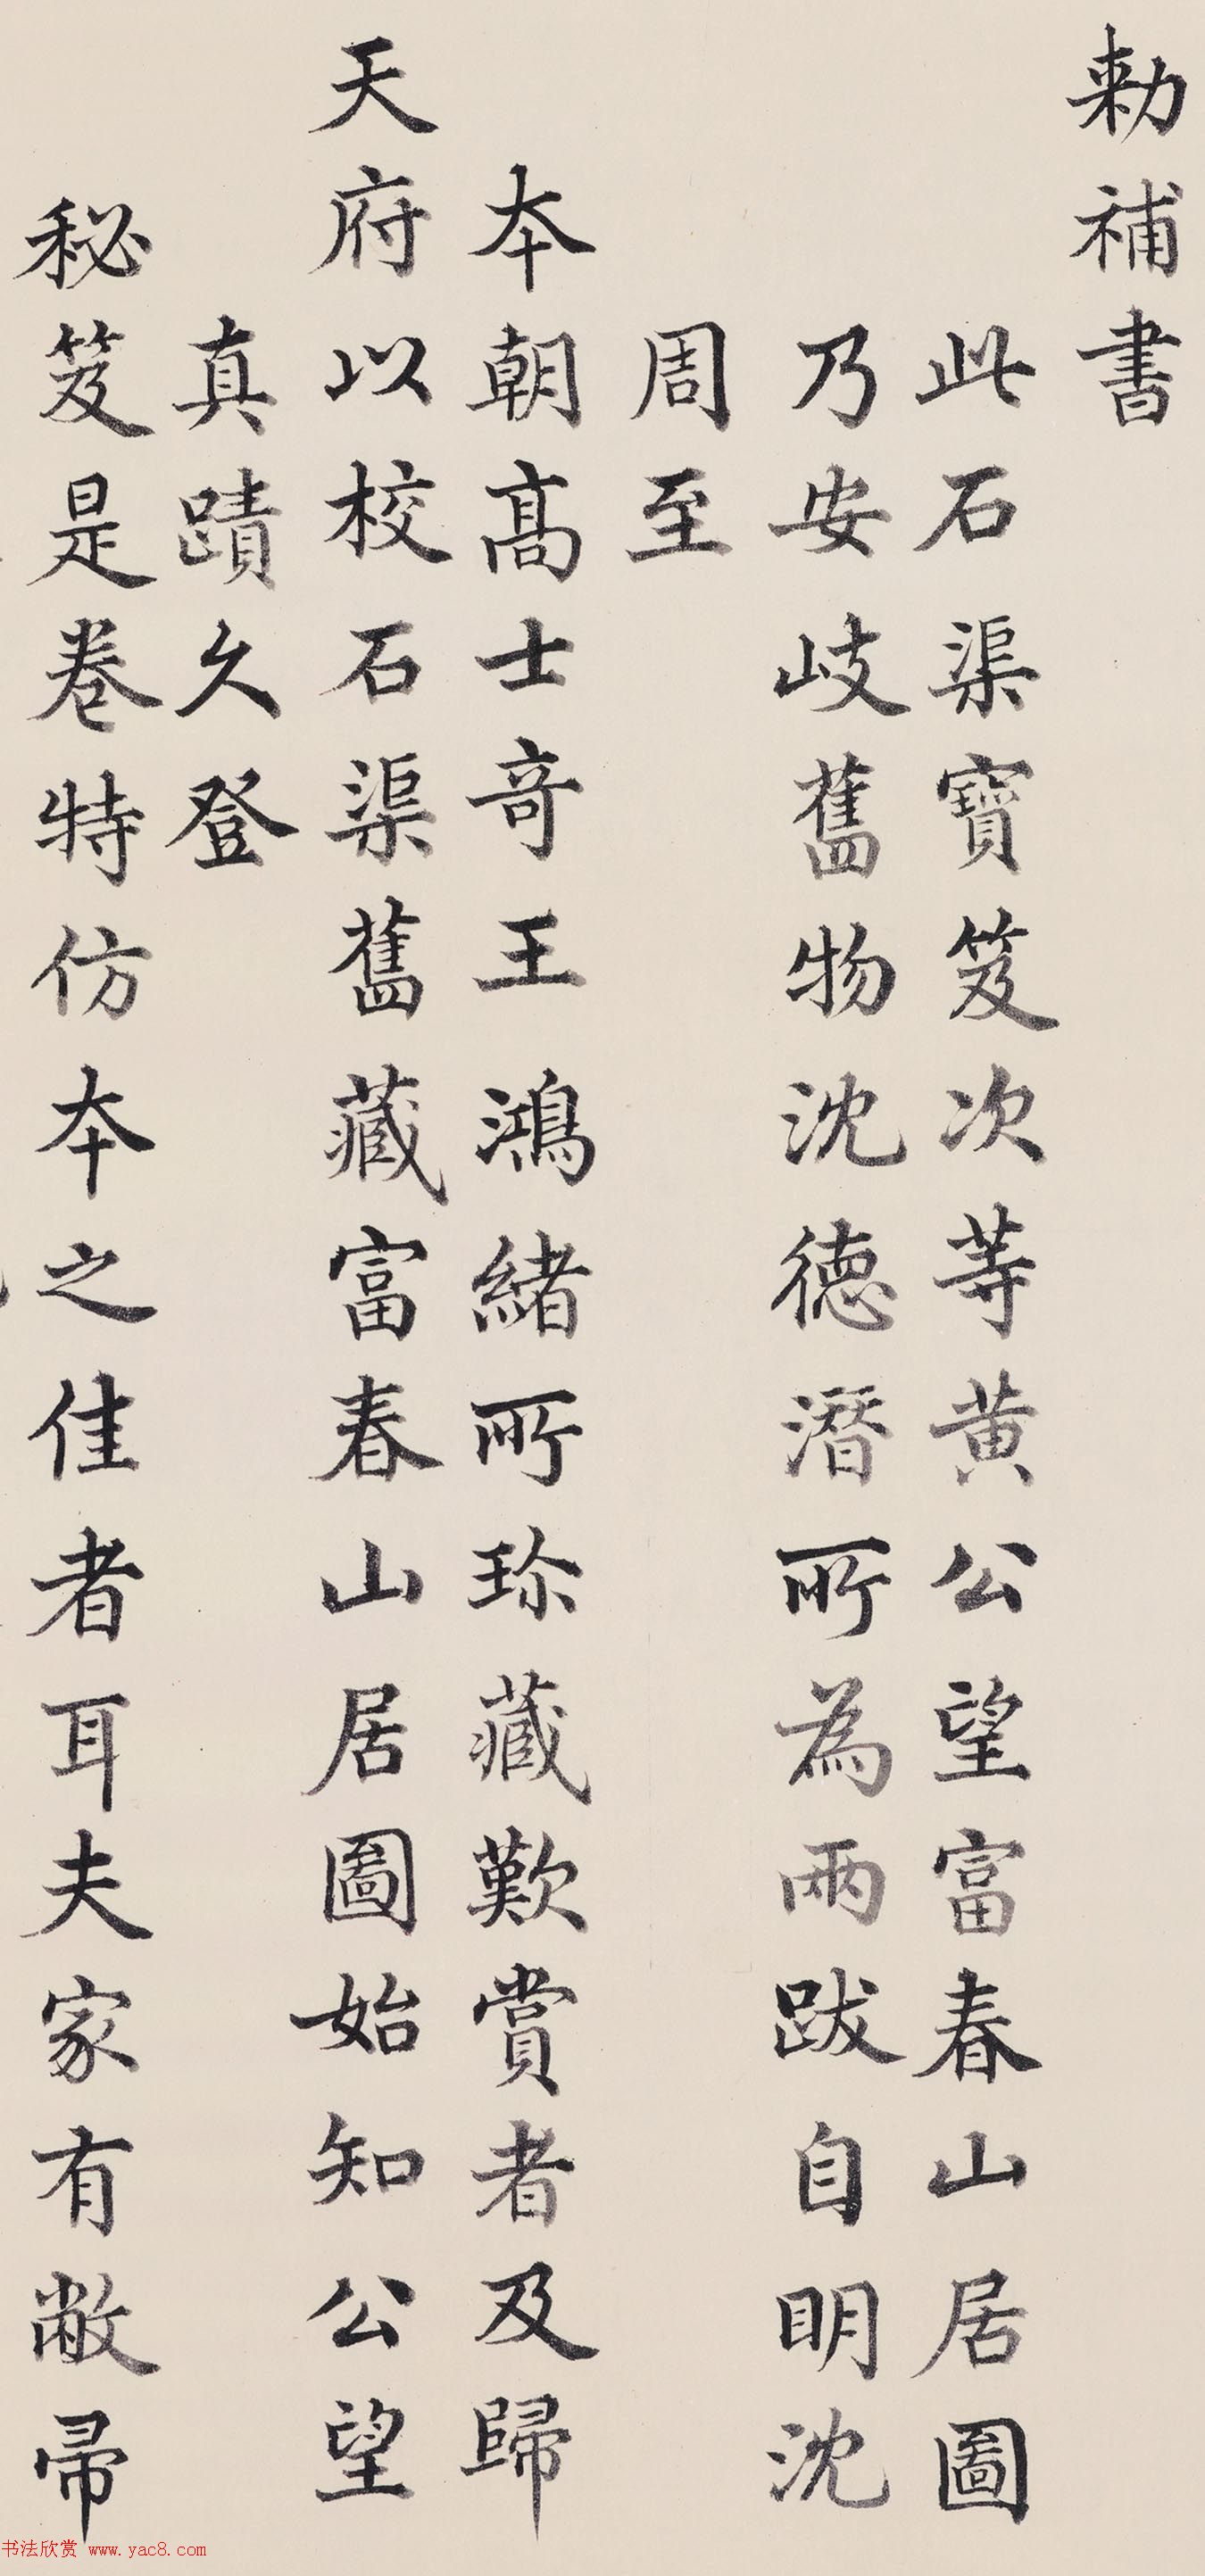 勅補書
此石渠寶笈次等黄公望富春山居圖
乃安岐舊物沈德潛所為兩跋自明沈
周至
本朝高士奇王鴻緒所珍藏歎賞者及歸
天府以校石渠舊藏富春山居圖始知公望
真蹟久登
秘笈是卷特仿本之佳者耳夫家有敝帚
书法欣赏 www.yac8.com